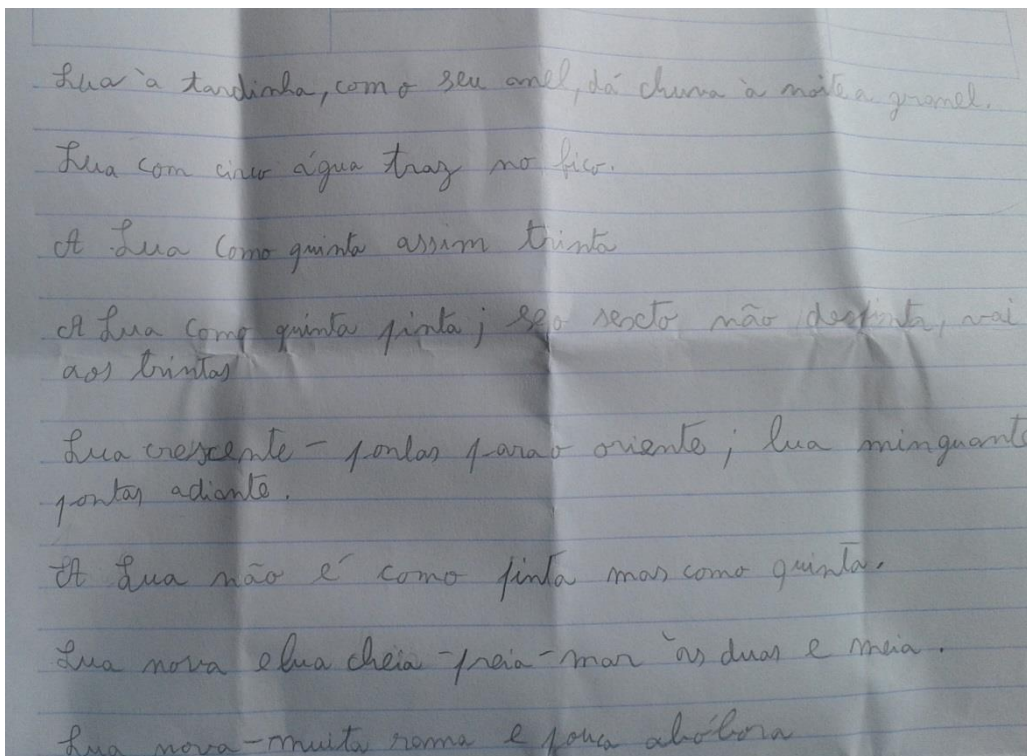 Lua à tardinha, com o seu anel, dá chuva à noite a granel.
Lua com circo água traz no bico.
A Lua como quinta assim trinta
A Lua como quinta pinta; se o sexto não despinta, vai
aos trintas
Lua crescente - pontas para o oriente; lua minguante
pontas adiante.
A Lua não é como pinta mas como quinta.
Lua nova e lua cheia - preia-mar às duas e meia.
Lua nova - muita rama e pouca abóbora